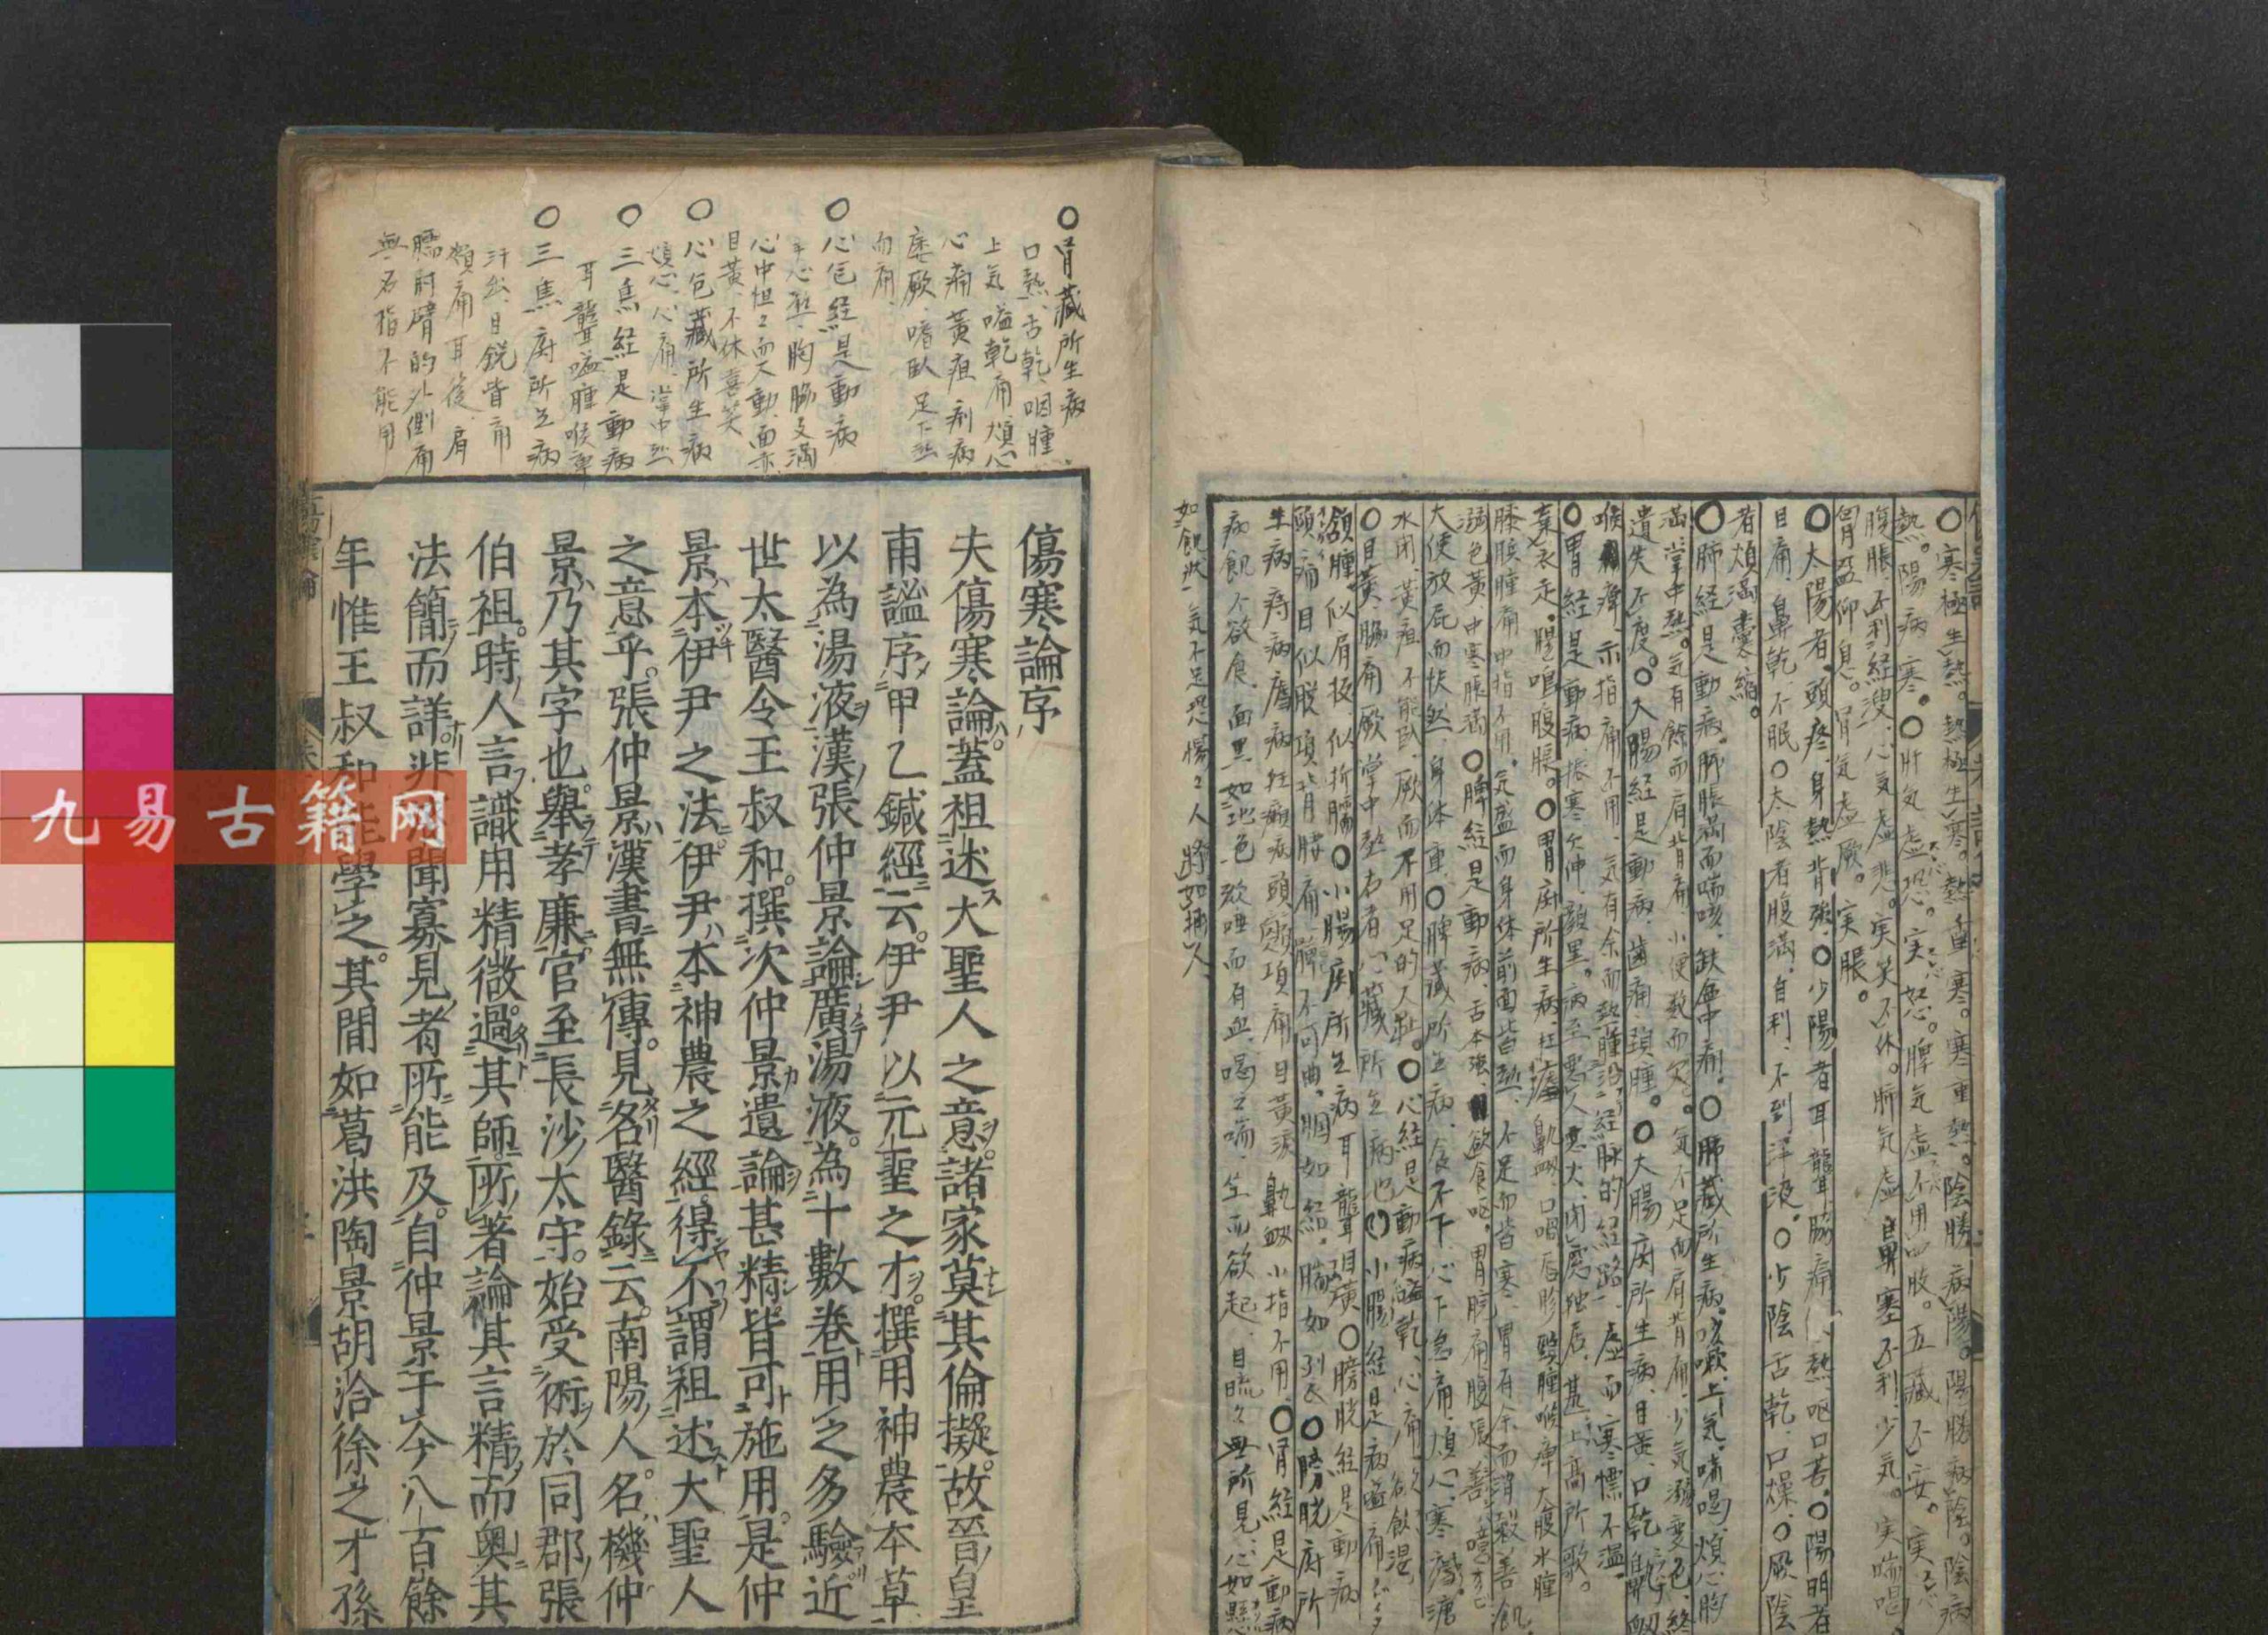 ○寒極生熱。熱極生寒。熱重寒。寒重熱。陰勝病陽。陽勝病陰。陰病
熱。陽病寒。○肝気虚恐。実怒。脾気虚不用四肢。五藏不安。実
腹脹、不利経溲、心気虚悲。実笑不休。肺気虚鼻塞不利、少気。実喘喝
仰息。腎気虚厥。実脹。
○太陽者、頭疼、身熱背強、○少陽者耳聾脇痛、熱、呕口苦。○陽明者
目痛、鼻乾、不眠○太陰者腹満、自利、不到津液。○少陰舌乾、口燥、○厥陰
者煩満囊縮。
○肺経是動病。肺脹満而喘咳、缺盆中痛。○肺藏所生病、咳嗽、上気、喘喝、煩心胸
満、掌中熱。気有餘而肩背痛、小便数而欠。気不足而肩背痛、少気溺変色、
遺失不度。○大腸経是動病、歯痛頚腫。○大腸府所生病、目黄、口乾鼽衄
喉痺、示指痛不用、気有余而熱腫、経脉的経路、虚而寒慄不温、
○胃経是動病、振寒欠伸、顔黒。病至悪人意火、閉処独居、甚上高所歌。
棄衣走、腸鳴腹脹。○胃府所生病、狂瘧、鼽衄、口喎唇胗、頸腫喉痺、大腹水腫
膝臏腫痛、中指不用、気盛而身体前面皆熱、不足而皆寒、胃有余而消穀善飢、
溺色黄、中寒脹満○脾経是動病、舌本強、欲食呕。胃脘痛腹張、善噫
大便放屁而快然、身体重、○脾藏所生病、食不下、心下急痛、煩心、寒瘧溏
水閉、黄疸、不能臥、厥而不用足的大趾。○心経是動病嗌乾、心痛欲飲
○目黄、脇痛、厥掌中熱右者心藏所生病也○小腸経是病嗌痛
頷腫、似肩抜似折臑○小腸府所生病耳聾目黄○膀胱経是動病
頭痛目似脱、項背腰痛、髀不可曲、膕如結、腨如列○膀胱府所
生病、痔病瘧病狂癲病頭顖項痛、目黄涙、鼽衄小指不用、○腎経是動病
病飢不欲食、面黒如地色、欬唾而有血、喝喝喘、坐而欲起、目䀮々無所見、心如懸
如飢状、気不足恐惕々人将如捕人、
○腎藏所生病
口熱、舌乾、咽腫、
上気嗌乾痛煩心
心痛黄疸、痢病
痿厥嗜臥足下熱
而痛、
○心包経是動病
手心熱、胸脇支満
心中憺々而大動、面赤
目黄、不休喜笑
○心包藏所生病
煩心、心痛、掌中熱
○三焦経是動病
耳聾嗌腫喉痺
○三焦府所生病
汗出、目鋭眥痛
頬痛耳後、肩
臑肘臂的外側痛
無名指不能用
傷寒論序
夫傷寒論。蓋祖述大聖人之意。諸家莫其倫擬。故晉皇
甫謐序甲乙鍼經云。伊尹以元聖之才。撰用神農本草
以為湯液。漢張仲景論廣湯液。為十數卷。用之多驗。近
世太醫令王叔和。撰次仲景遺論甚精。皆可施用。是仲
景本伊尹之法。伊尹本神農之經。得不謂祖述大聖人
之意乎。張仲景漢書無傳。見名醫錄云。南陽人。名機。仲
景乃其字也。舉孝廉。官至長沙太守。始受術於同郡張
伯祖。時人言。識用精微。過其師。所著論。其言精而奧。其
法簡而詳。非淺聞寡見者所能及。自仲景于今八百餘
年。惟王叔和能學之。其間如葛洪陶景胡洽徐之才孫
九易古籍网